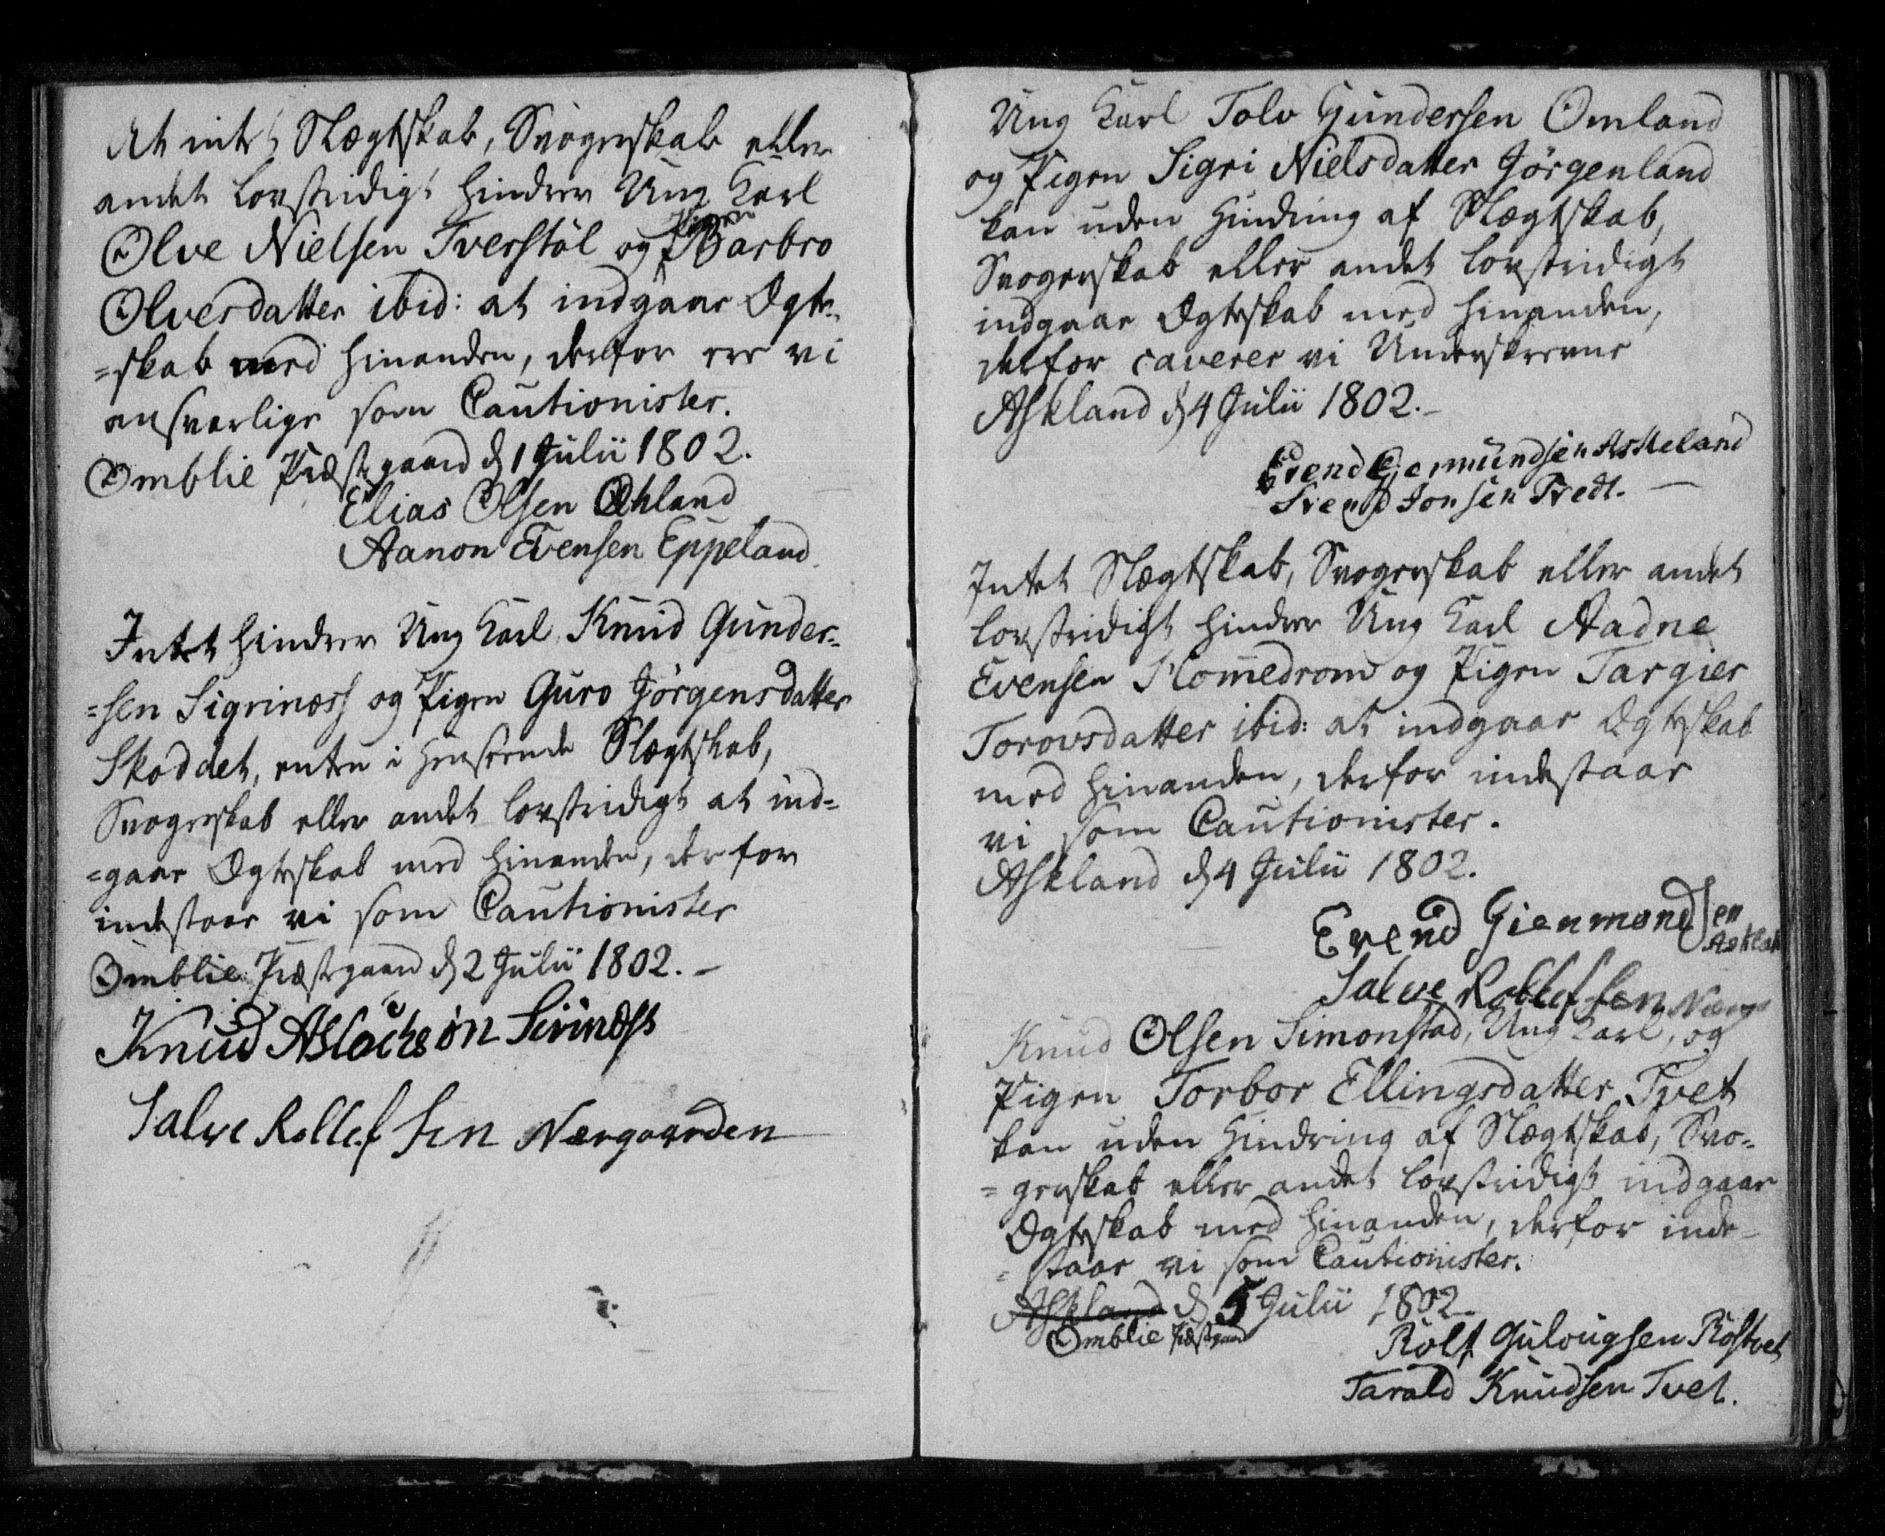 At intet Slægtskab, Svogerskab eller
andet lovstridigt hindrer Ung Karl
Olve Nielsen Tverstöl og Pigen Barbro
Olversdatter ibid: at indgaae Ægte-
=skab med hinanden, derfor ere vi
ansvarlige som Cautionister.
Omblie Præstegaard d 1 Julii 1802.
Elias Olsen Ohland
Aanon Evensen Eppeland.
Intet hindrer Ung Karl Knud Gunder-
=sen Sigrinæss og Pigen Guro Jörgensdatter
Skoddet, enten i Henseende Slægtskab,
Svogerskab eller andet lovstridigt at ind=
=gaae Ægteskab med hinanden, derfor
indestaae vi som Cautionister
Omblie Præstegaard d 2 Julii 1802.
Knud Aslachsøn Sirinæss
Salve Rollefsen Nærgaarden
Ung Karl Tolv Gundersen Omland
og Pigen Sigri Nielsdatter Jörgenland
kan uden Hindring af Slægtskab,
Svogerskab eller andet lovstridigt
indgaae Ægteskab med hinanden,
derfor caverer vi Underskrevne
Askland d 4 Julii 1802.
Evend Giermundsen Askeland
Svend Jonsen Tvedt.
Intet Slægtskab, Svogerskab eller andet
lovstridigt hindrer Ung Karl Aadne
Evensen Homedrom og Pigen Targier
Torovsdatter ibid: at indgaae Ægteskab
med hinanden, derfor indestaae
vi som Cautionister.
Askland d 4 Julii 1802.
Evend Gienmondsen
Salve Rollefsen
Knud Olsen Simonstad, Ung Karl, og
Pigen Torbor Ellingsdatter Tvet
kan uden Hindring af Slægtskab, Svo-
=gerskab eller andet lovstridigt indgaae
Ægteskab med hinanden, derfor inde-
=staae vi som Cautionister.
Askland d 5 Julii 1802.
Omblie Præstegaard
Rolf Gulougsen Röstvet
Tarald Knudsen Tvet.